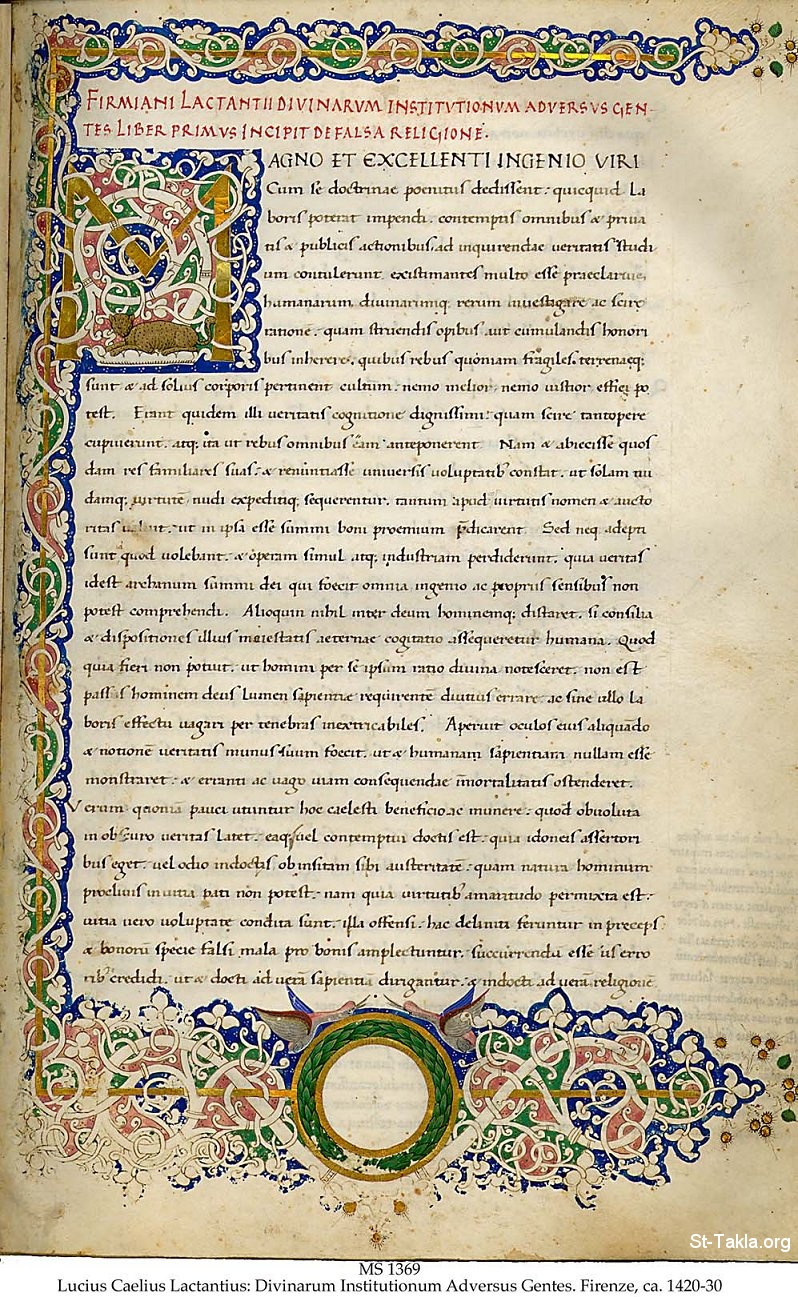 FIRMIANI LACTANTII DIVINARVM INSTITVTIONVM ADVERSVS GEN-
TES LIBER PRIMVS INCIPIT DE FALSA RELIGIONE.
MAGNO ET EXCELLENTI INGENIO VIRI
Cum se doctrinae poenitus dedissent: quicquid La
boris poterat impendi. contemptis omnibus & priua
tis & publicis actionibus. ad inquirendae veritatis studi
um contulerunt. existimantes multo esse praeclarius,
humanarum, divinarumq; rerum investigare ac scire
ratione. quam struendis opibus aut cumulandis honori
bus inherere. quibus rebus quoniam fragiles. terrenaeq;
sunt & ad solius corporis pertinent cultum. nemo melior. nemo iustior effici po
test. Erant quidem illi veritatis cognitione dignissimi: quam scire tantopere
cupiuerunt. atq; ita ut rebus omnibus eam anteponerent. Nam & abiecisse quos
dam res familiares suas. & renuntiasse universis voluptatib; constat. ut solam nu
damq; virtutē nudi expeditiq; sequerentur. tantum apud virtutis nomen & aucto
ritas. ut in ipsa esse summi boni proemium p̄dicarent. Sed neq adepti
sunt quod volebant. & operam simul atq; industriam perdiderunt. quia veritas
idest archanum summi dei qui foecit omnia ingenio ac propriis sensibus non
potest comprehendi. Alioquin nihil inter deum hominemq; distaret. si consilia
& dispositiones illius maiestatis aeternae cogitatio assequeretur humana. Quod
quia fieri non potuit. ut homini per se ipsum ratio divina notesceret. non est
passus hominem deus Lumen sapientiae requirentē diutius errare. ac sine ullo La
boris effectu vagari per tenebras inextricabiles. Aperuit oculos eius aliquādo
& notionē veritatis munus suum foecit. ut & humanam sapientiam nullam esse
monstraret. & erranti ac vago viam consequendae īmortalitatis ostenderet.
Verum qm̄ pauci utuntur hoc caelesti beneficio ac munere. quod obvoluta
in obscuro veritas Latet. eaq; vel contemptui doctis est. quia idoneis assertori
bus eget. vel odio indoctis ob insitam sibi austeritatē. quam natura hominum
proclivis in vitia pati non potest. nam quia virtutib; amaritudo permixta est.
vitia vero voluptate condita sunt. illa offensi. hac deliniti feruntur in preceps
& bonorū specie falsi mala pro bonis amplectuntur. succurrendū esse iis erro
rib; credidi. ut & docti ad verā sapientiā dirigantur. & indocti ad verā religionē
St-Takla.org
MS 1369
Lucius Caelius Lactantius: Divinarum Institutionum Adversus Gentes. Firenze, ca. 1420-30